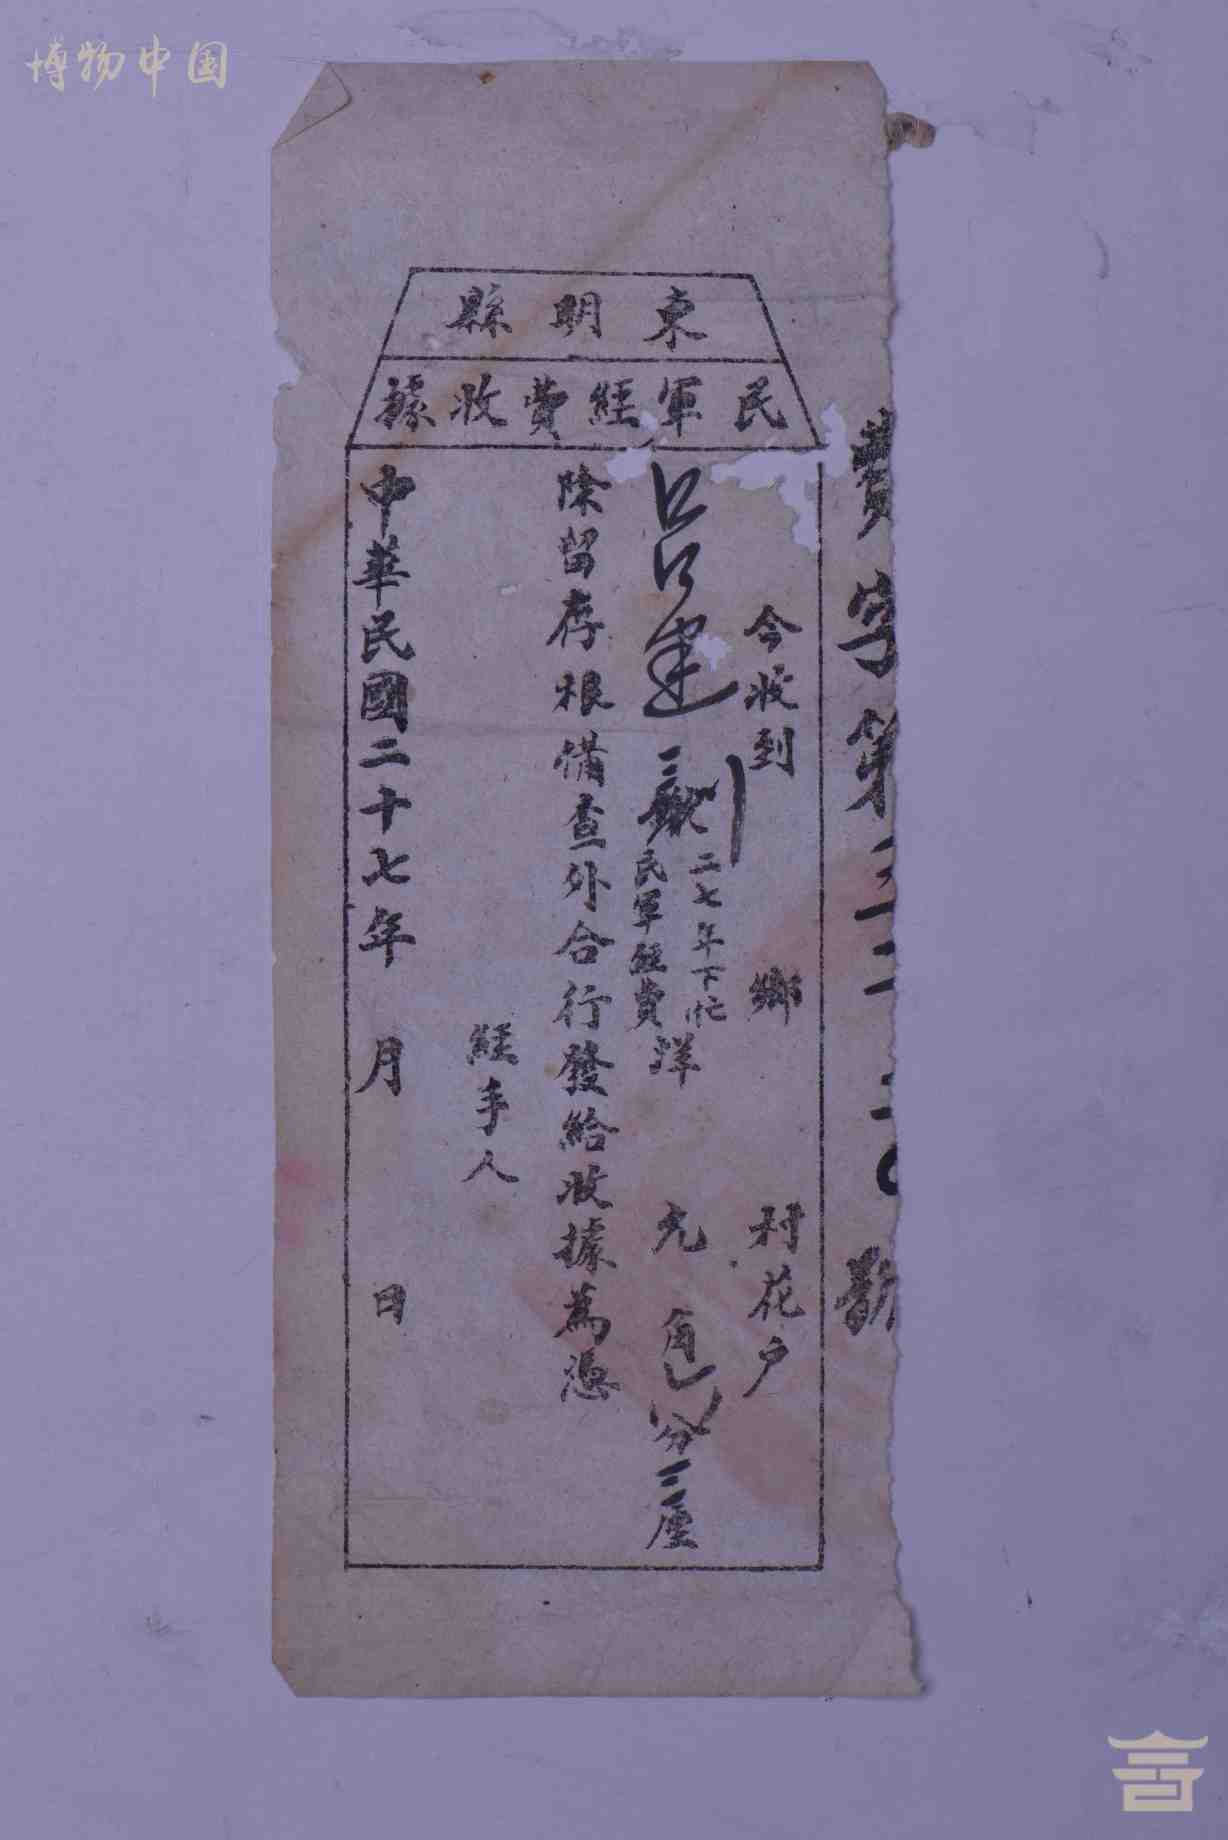 博物中国
東明縣
民軍經費收據
費字第
號
今收到 鄉 村花户
呂建
二七年下忙
民軍經費
洋 元 角 分三厘
除留存根備查外合行發給收據為憑
經手人
中華民國二十七年 月 日